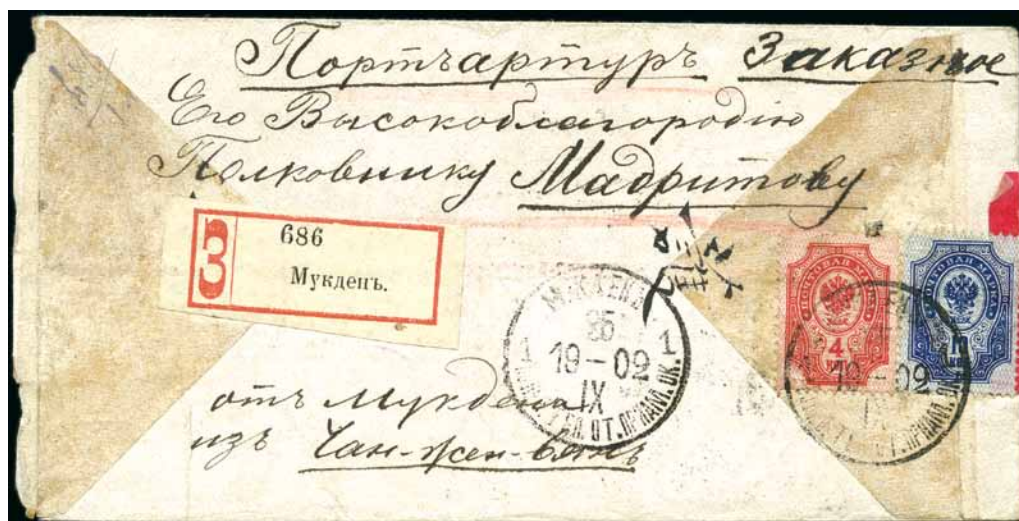 Портъартуръ Заказное
Его Высокоблагородію
Полковнику Мадритову
З
686
Мукденъ.
МУКДЕНЪ
25
1 19–02 1
IX
ОТ. ПРИАМ. ОК.
4
19–02
ОТ. ПРИАМ. ОК.
ПОЧТОВАЯ МАРКА
ПОЧТОВАЯ МАРКА
отъ Мукдена
изъ Чан-жен-вянъ